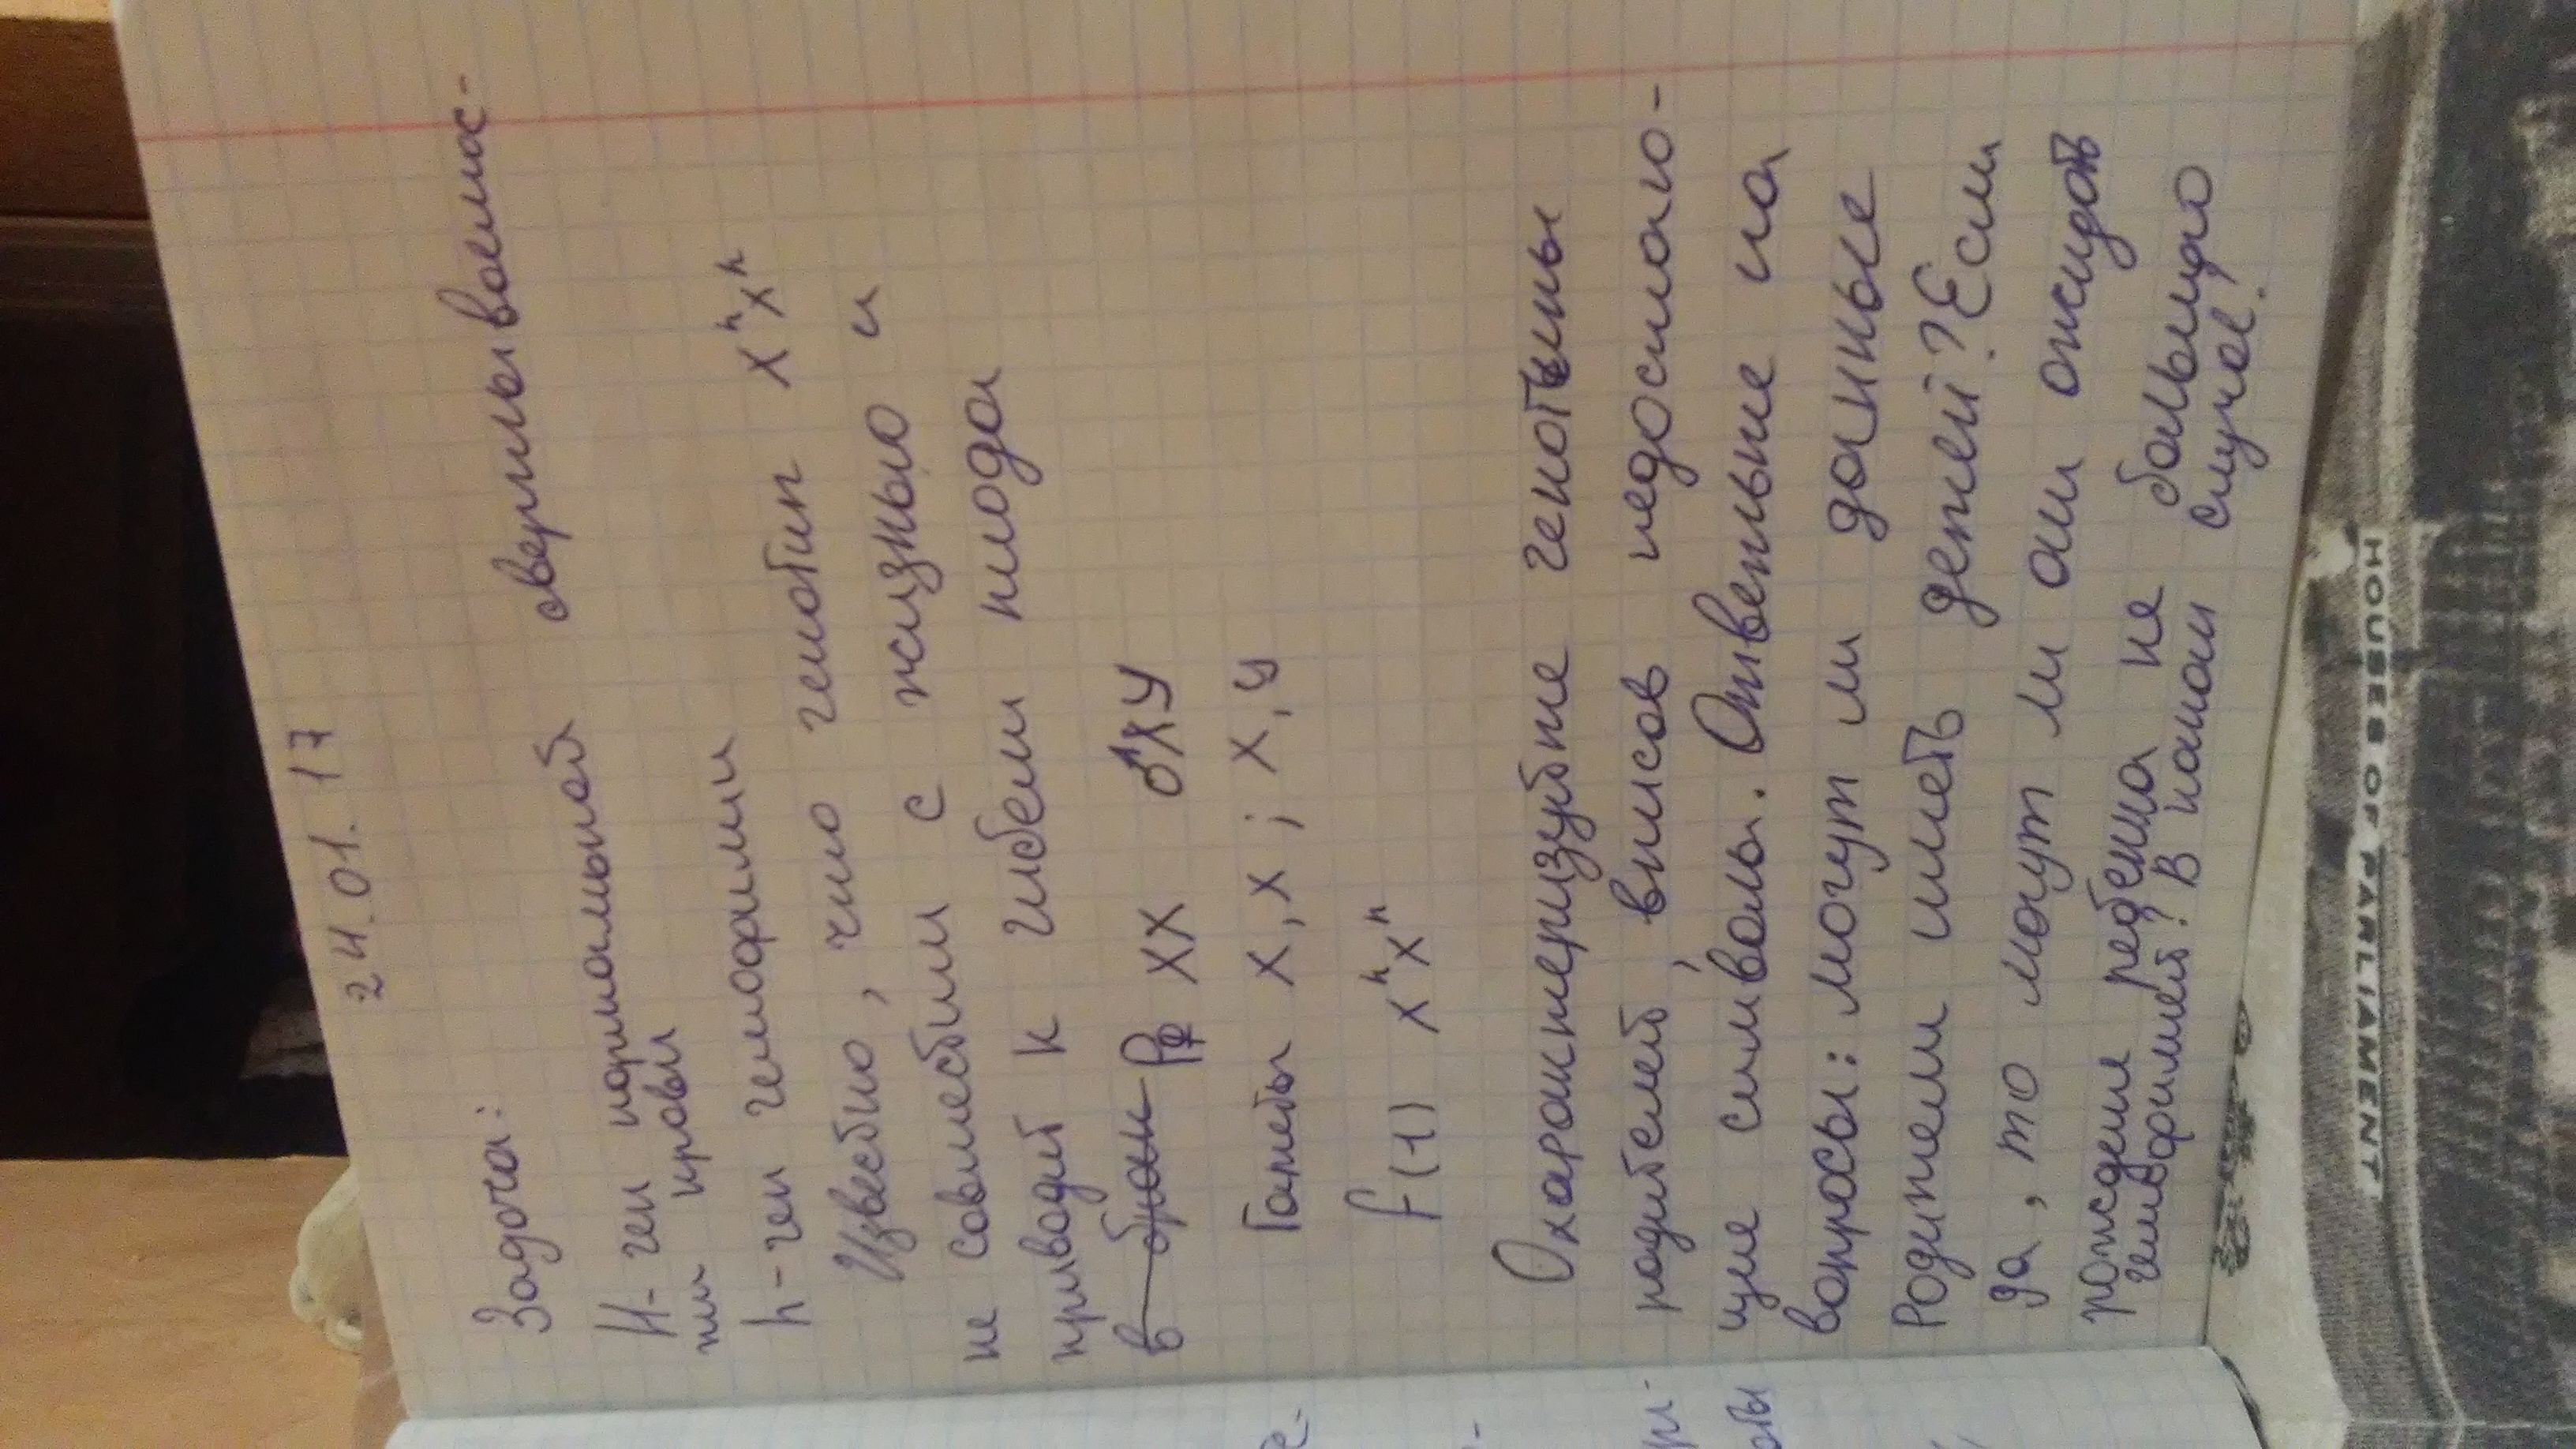 24.01.17
Задача:
H- ген нормальной свертываемос-
ти крови
h- ген гемофилии
Известно, что генотип XʰXʰ
не совместим с жизнью и
приводит к гибели плода
P ♀ XX ♂XY
Гаметы X, X ; X, Y
F(1) XʰXʰ
Охарактеризуйте генотипы
родителей, вписав недостаю-
щие символы. Ответьте на
вопросы: могут ли данные
родители иметь детей? Если
да, то могут ли они ожидать
рождения ребёнка не больного
гемофилией? В каком случае?
HOUSES OF PARLIAMENT